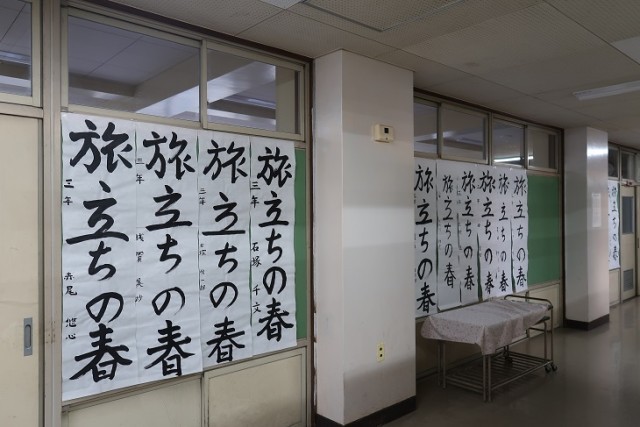 旅立ちの春
三年 赤尾
旅立ちの春
三年
旅立ちの春
三年
旅立ちの春
三年 石塚 千文
旅立ちの春
旅立ちの春
旅立ちの春
旅立ちの春
旅立ちの春
旅立ちの春
旅立ちの春